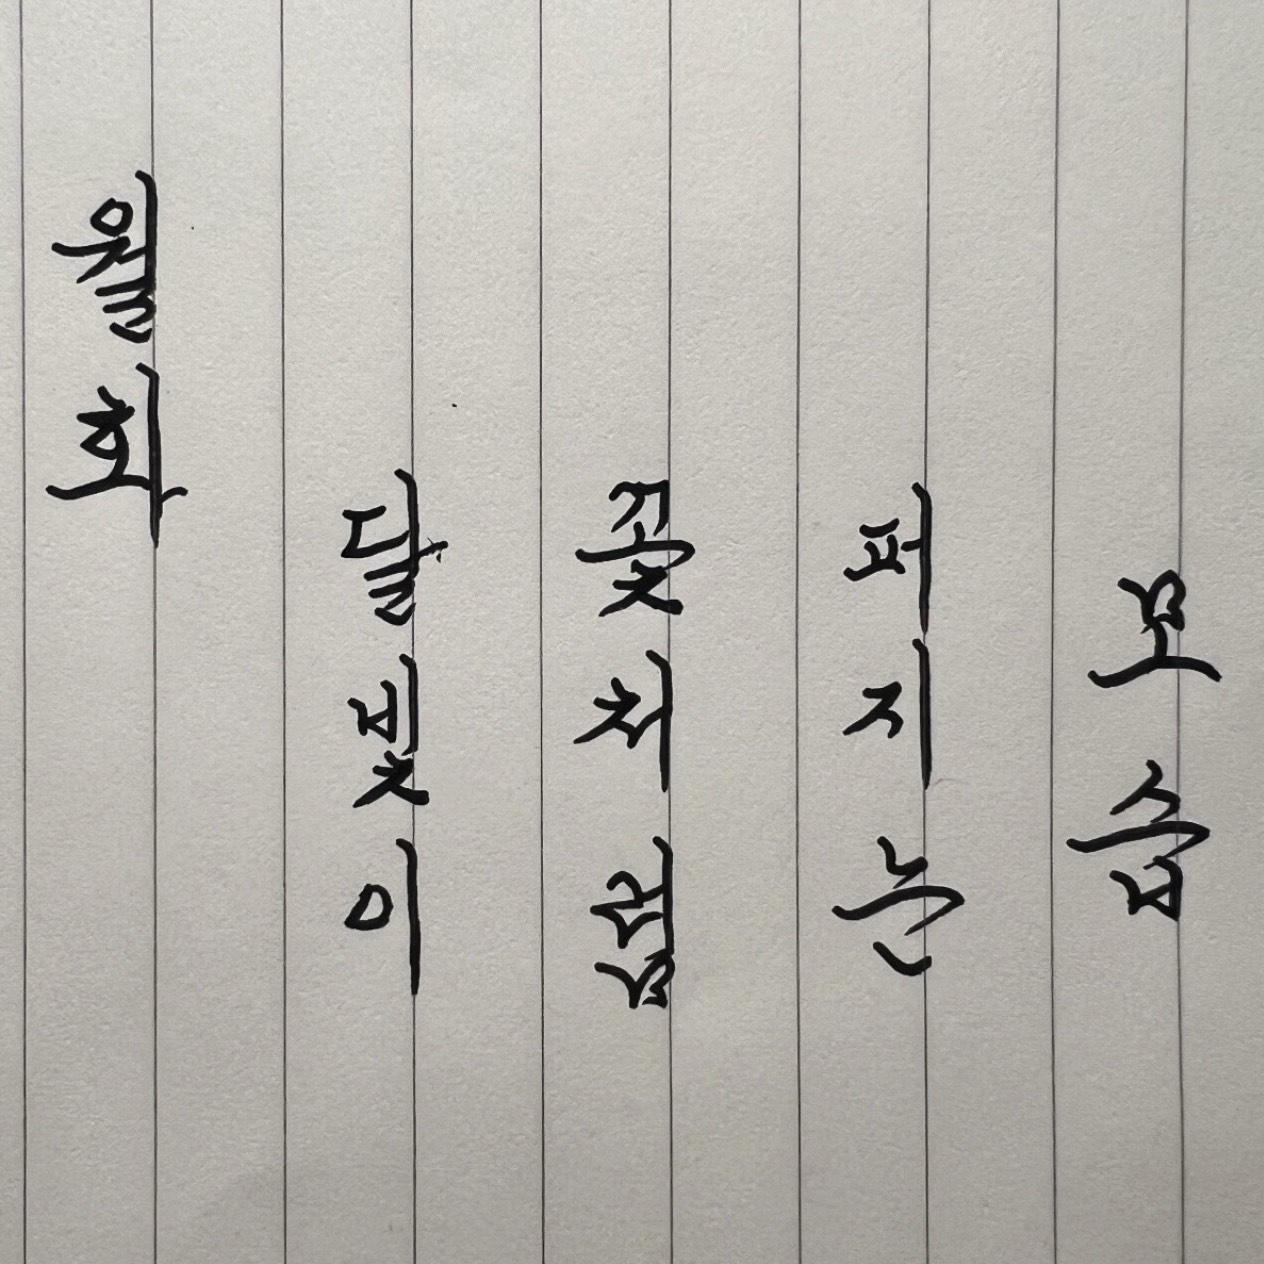 월화
달빛이
꽃처럼
퍼지는
모습